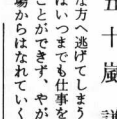 五十嵐
な方へ逃げてしまう
はいつまでも仕事を
ことができず、やが
場からはなれていく